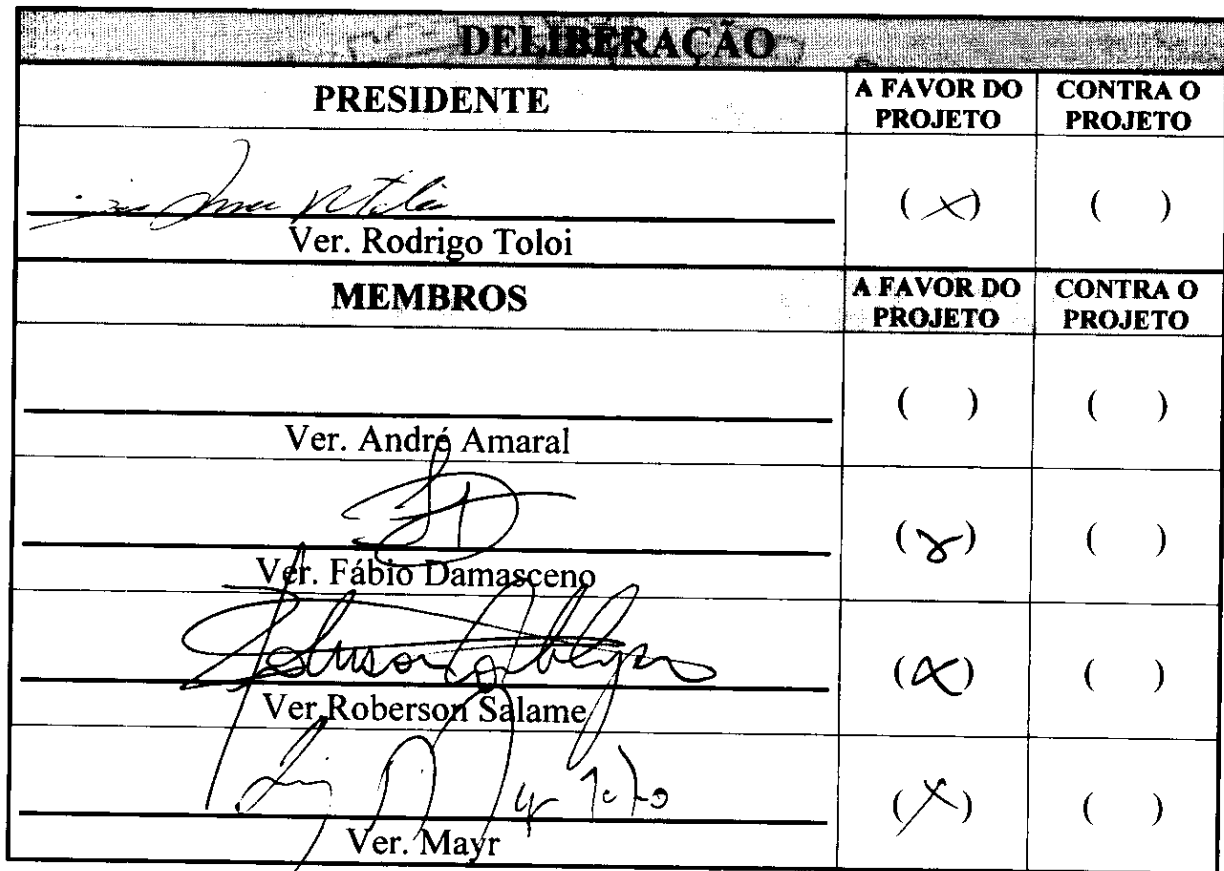 DELIBERAÇÃO
PRESIDENTE
A FAVOR DO PROJETO
CONTRA O PROJETO
(X) ( )
Ver. Rodrigo Toloi
MEMBROS
A FAVOR DO PROJETO
CONTRA O PROJETO
( ) ( )
Ver. André Amaral
(X) ( )
Ver. Fábio Damasceno
(X) ( )
Ver. Roberson Salame
(X) ( )
Ver. Mayr